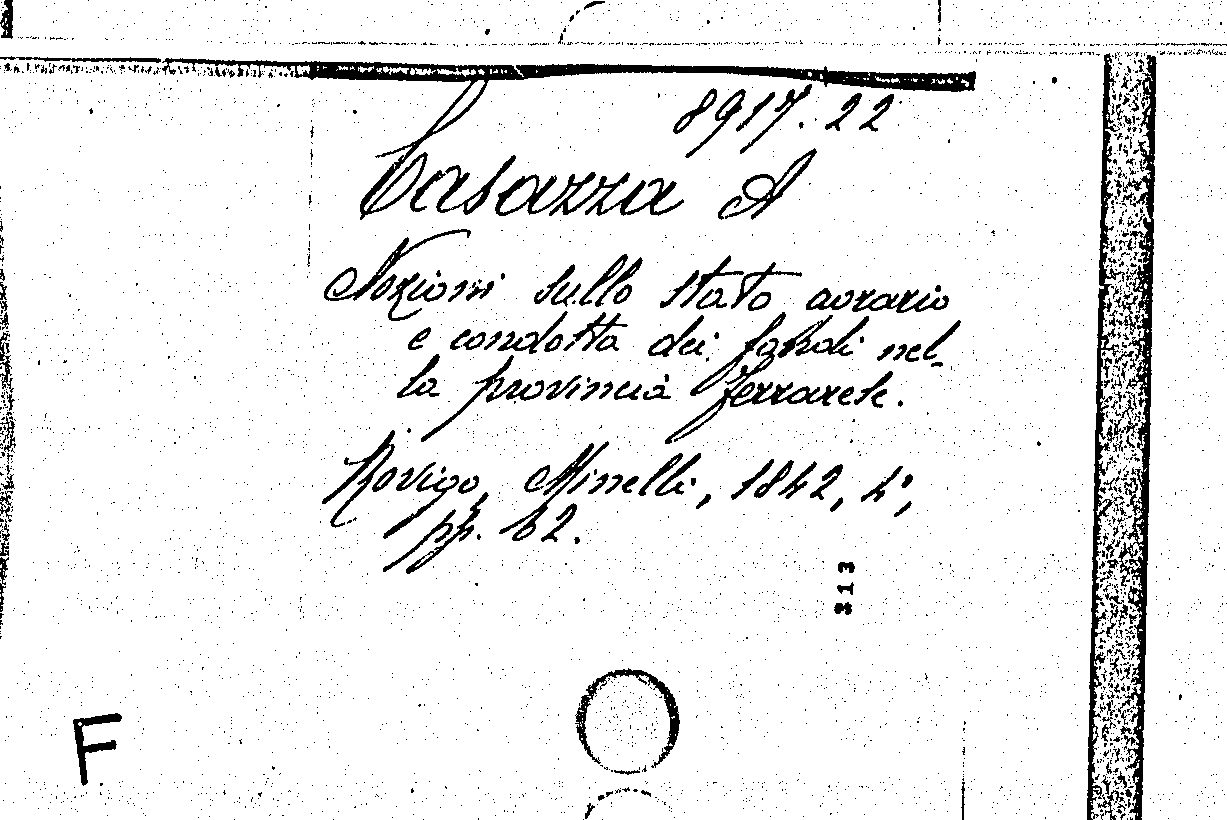 8917.22
Casazza A
Nozioni sullo stato agrario
e condotta dei fondi nel-
la provincia ferrarese.
Rovigo, Minelli, 1842, 4°,
pp. 62.
313
F